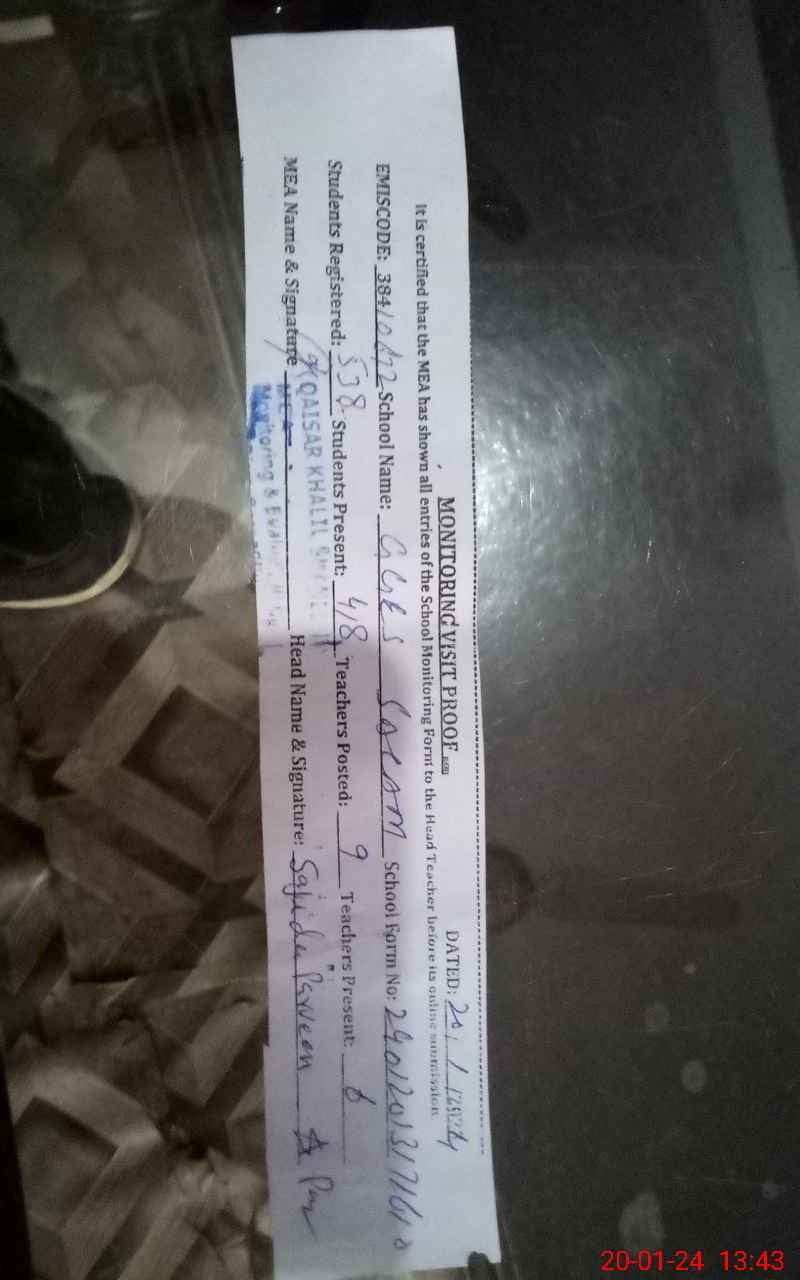 MONITORING VISIT PROOF
DATED: 20/1/2024
It is certified that the MEA has shown all entries of the School Monitoring Form to the Head Teacher before its online submission.
EMISCODE: School Name: GGES School Form No:
Students Registered: 538 Students Present: 418 Teachers Posted: 9 Teachers Present:
MEA Name & Signature Head Name & Signature: Sajida Parveen
QAISAR KHALIL
MEA
Monitoring &
20-01-24 13:43